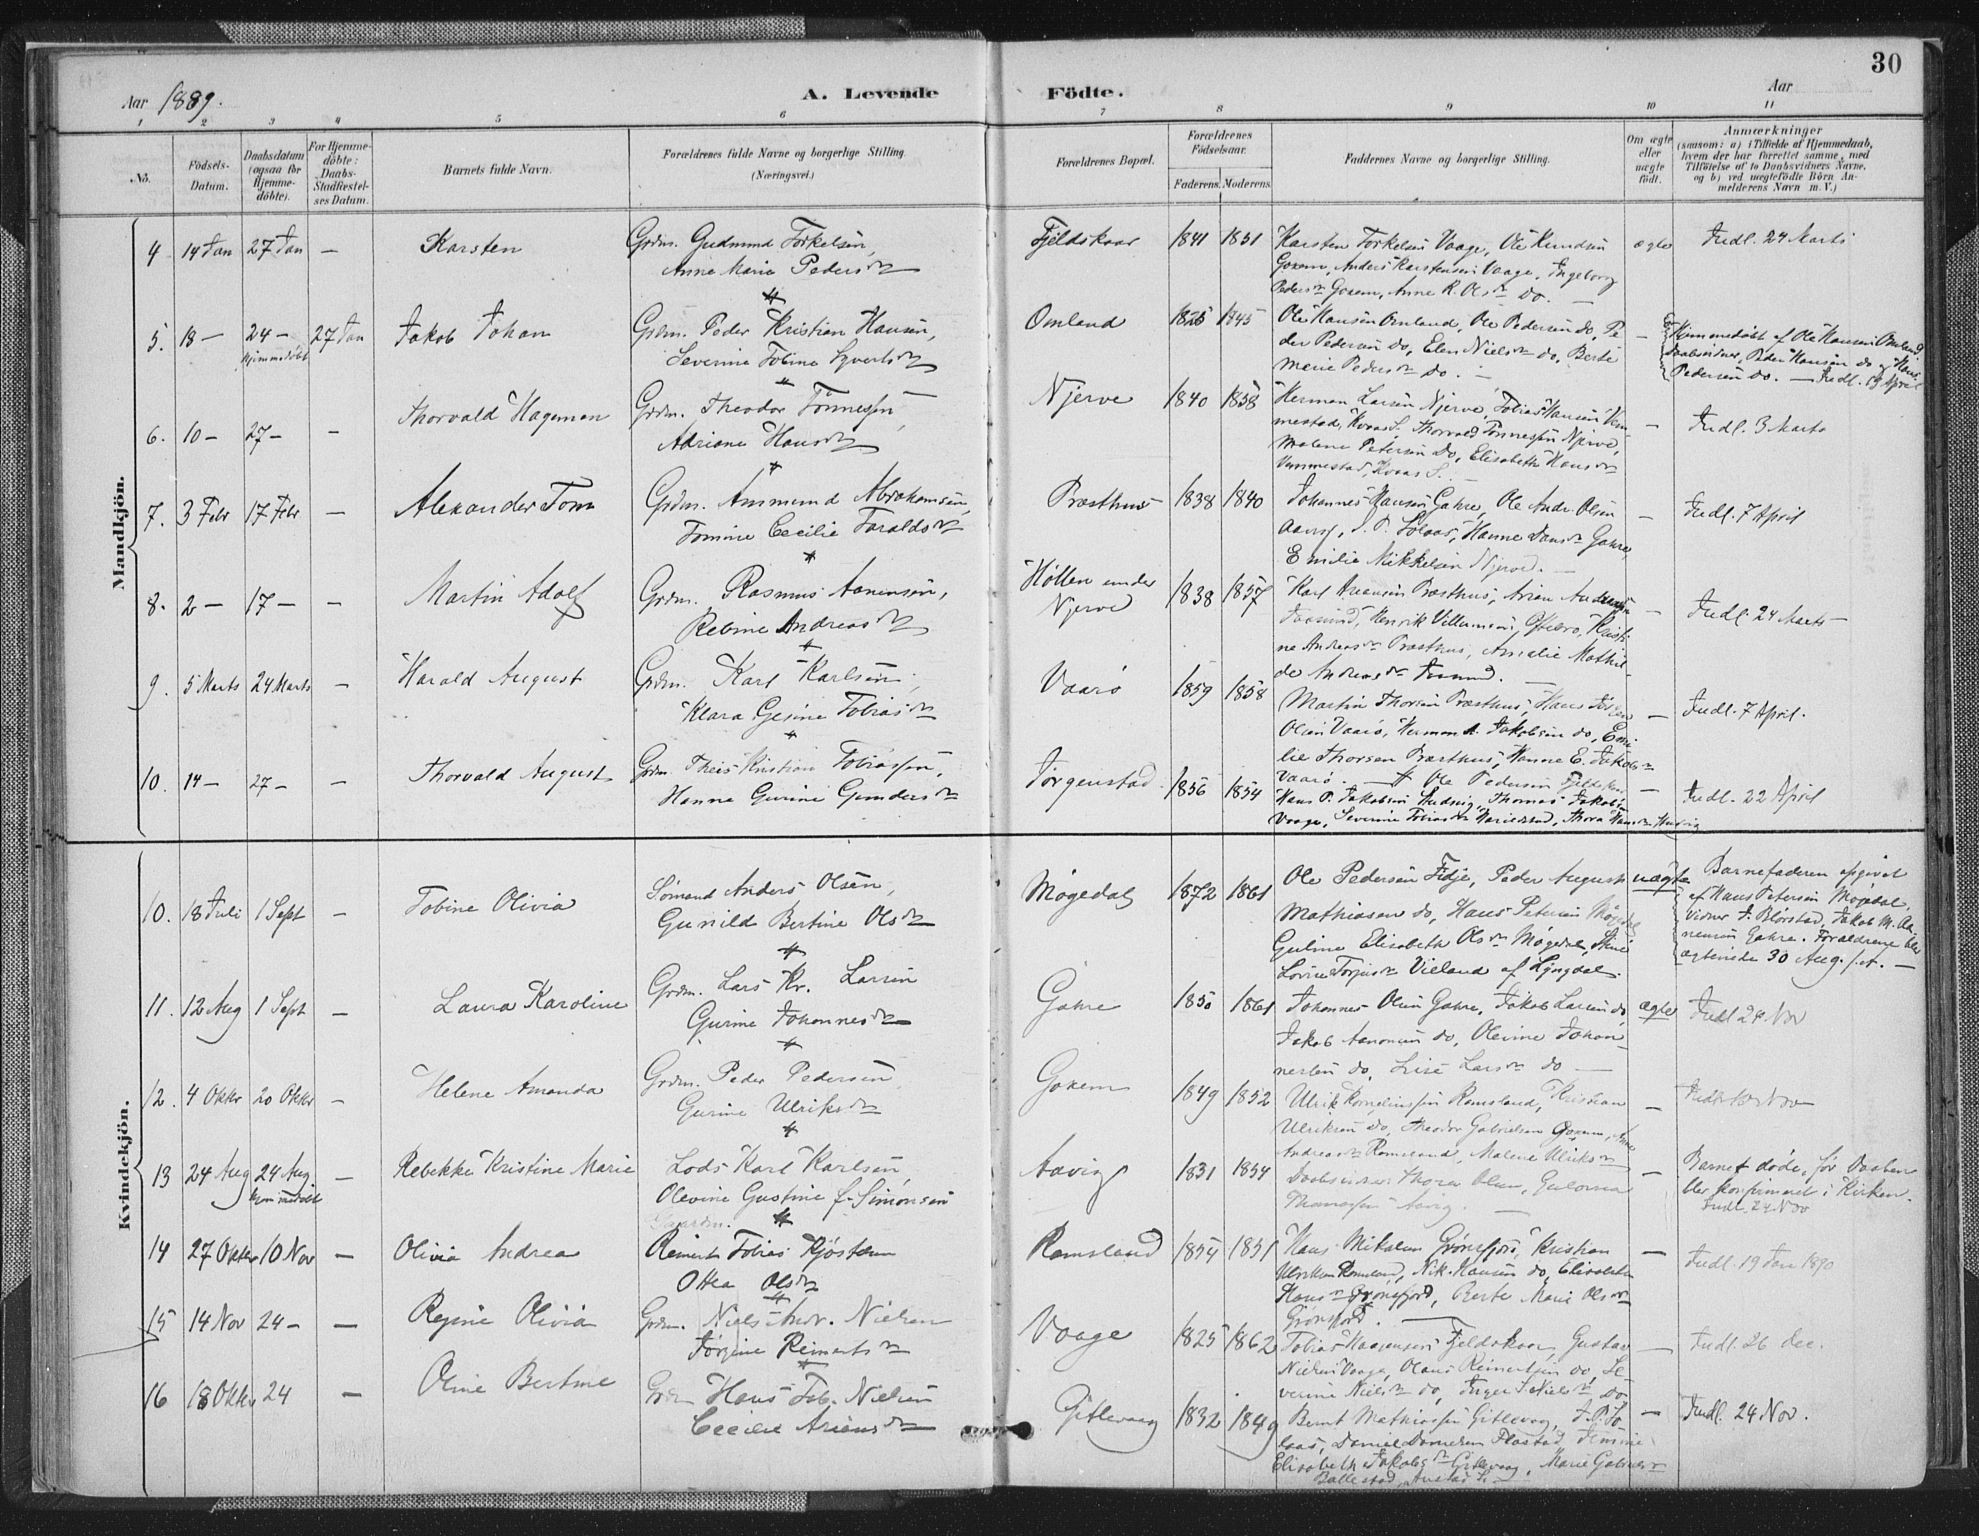 30
Aar 1889.
A. Levende Födte.
Aar
1 2 3 4 5 6 7 8 9 10 11
No.
Födsels-Datum.
Daabsdatum (ogsaa for Hjemme-döbte).
For Hjemme-döbte: Daabs-Stadfæstel-ses Datum.
Barnets fulde Navn.
Forældrenes fulde Navne og borgerlige Stilling. (Næringsvei.)
Forældrenes Bopæl.
Forældrenes Födselsaar.
Faderens. Moderens.
Faddernes Navne og borgerlige Stilling.
Om ægte eller uægte födt.
Anmærkninger
(saasom: a) i Tilfælde af Hjemmedaab, hvem der har forrettet samme, med Tilföielse af to Daabsvidners Navne, og b) ved uægtefödte Börn An-melderens Navn m. V.)
Mandkjön.
4 14 Jan 27 Jan — Karsten
Grdm. Gudmund Torkelsen,
Anne Marie Pedersdr
Fjeldskaar 1841 1851
Karsten Torkelsen Vaage, Ole Knudsen
Goxem, Anders Karstensen Vaage, Ingeborg
Pedersdr Goxem, Anne K. Olsdr do. —
ægte
Indl. 24 Marts
5. 18 — 24 — Hjemmedöbt 27 Jan Jakob Johan
Grdm. Peder Kristian Hansen,
Severine Tobine Syvertsdr
Omland 1825 1845
Ole Hansen Omland, Ole Pedersen do, Pe-
der Pedersen do, Elen Nielsdr do, Berte
Marie Pedersdr do. —
—
Hjemmedöbt af Ole Hansen Omland,
Daabsvidner, Peder Hansen do og Hans
Pedersen do. — Indl. 19 April
6. 10 — 27 — — Thorvald Hageman
Grdm. Theodor Tönnessen,
Adriane Hansdr
Njerve 1840 1858
Herman Larsen Njerve, Tobias Hansen Vem-
mestad, Kvaas S. Thorvald Tönnessen Njerve,
Malene Petersen do, Elisabeth Hansdr
Vemmestad, Kvaas S. —
—
Indl. 3 Marts
7. 3 Febr 17 Febr — Alexander Tom
Grdm. Ammund Abrahamsen,
Tomine Cecilie Taraldsdr
Præsthus 1838 1840
Johannes Hansen Gahre, Ole Andr. Olsen
Aavig, J. P. Lolaas, Hanne Dansdr Gahre,
Emilie Mikkelsen Njerve. —
—
Indl. 7 April
8. 2 — 17 — — Martin Adolf
Grdm. Rasmus Aanensen,
Rebine Andreasdr
Höllen under
Njerve 1838 1857
Karl Præsthus, Arian Andreassen
Henrik Villumsen, Kristi-
ne Andreasdr Præsthus, Amalie Mathil-
de Andreasdr
—
Indl. 24 Marts
9. 5 Marts 24 Marts — Harald August
Grdm. Karl Karlsen,
Klara Gesine Tobiasdr
Vaarö 1859 1858
Martin Thorsen Præsthus, Hans
Olsen Vaarö, Herman A. Jakobsen do, Emi-
lie Thorsen Præsthus, Hanne E. Jakobsdr
Vaarö. —
—
Indl. 7 April.
10. 14 — 27 — — Thorvald August
Grdm. Theis Kristian Tobiassen,
Hanna Gurine Gundersdr
Jörgenstad 1856 1854
Ole Pedersen Fjeldskaar
Hans P. Jakobsen, Thomas Jakobsen
Vaage, Severine Tobiasdr, Thora Hansdr
—
Indl. 22 April
Kvindekjön.
10. 18 Juli 1 Sept — Tobine Olivia
Sömand Anders Olsen,
Gunild Bertine Olsdr
Mögedal 1872 1861
Ole Pedersen Fidje, Peder August
Mathiasen do, Hans Petersen Mögedal
Guline Elisabeth Olsdr Mögedal,
Lovise Torjusdr Vieland af Lyngdal.
uægte
Barnefaderen opgivet
af Hans Petersen Mögedal,
Vidner, Jakob M. Aa-
nensen Gahre. Forældrene blev
ægteviede 30 Aug. —
11. 12 Aug 1 Sept — Laura Karoline
Grdm. Lars Kr. Larsen
Gurine Johannesdr
Gahre 1850 1861
Johannes Olsen Gahre, Jakob Larsen do,
Jakob Aanonsen do, Olevine Johan-
nesen do, Lise Larsdr do —
ægte
Indl 24 Nov
12. 4 Oktbr 20 Oktbr — Helene Amanda
Grdm. Peder Pedersen,
Gurine Ulriksdr
Goxem 1849 1852
Ulrik Korneliussen Ramsland, Kristian
Ulriksen do, Theodor Gabrielsen Goxem,
Andreasdr Ramsland, Malene Ulriksdr
—
13 24 Aug 24 Aug. Hjemmedöbt — Rebekke Kristine Marie
Lods Karl Karlsen
Olevine Gustine f. Simonsen
Aavig 1831 1854
Daabsvidner Thora Olsen,
Aavig. —
—
Barnet döde, för Daaben
blev konfirmeret i Kirken.
Indl. 24 Nov
14 27 Oktbr 10 Nov — Olivia Andrea
Gaardm.
Reinert Tobias Kjöstem
Othea Olsdr
Ramsland 1854 1851
Hans Mikalsen Grönsfjord, Kristian
Ulriksen Ramsland, Nik. Hansen do, Elisabeth
Hansdr Grönsfjord, Berte Marie Olsdr
Grönsfjord. —
—
Indl. 19 Jan 1890
15 14 Nov 24 — — Regine Olivia
Grdm. Niels Andr. Nielsen
Jörgine Reinertsdr
Vaage 1825 1862
Tobias Fjeldskaar, Gustav
Nielsen Vaage, Olaus Reinertsen do, Se-
verine Nielsdr do, Inger S. Nielsdr do
—
Indl. 26 Dec.
16 18 Oktbr 24 — Oline Bertine
Grdm Hans Tob. Nielsen
Cecilie Ariensdr
Gitlevaag 1832 1849
Bernt Mathiassen Gitlevaag, J. P. Lo-
laas, Daniel Danielsen Flastad,
Elisabeth Jakobsdr Gitlevaag, Marie Gabrielsdr
Ballestad, Austad S. —
—
Indl. 24 Nov.